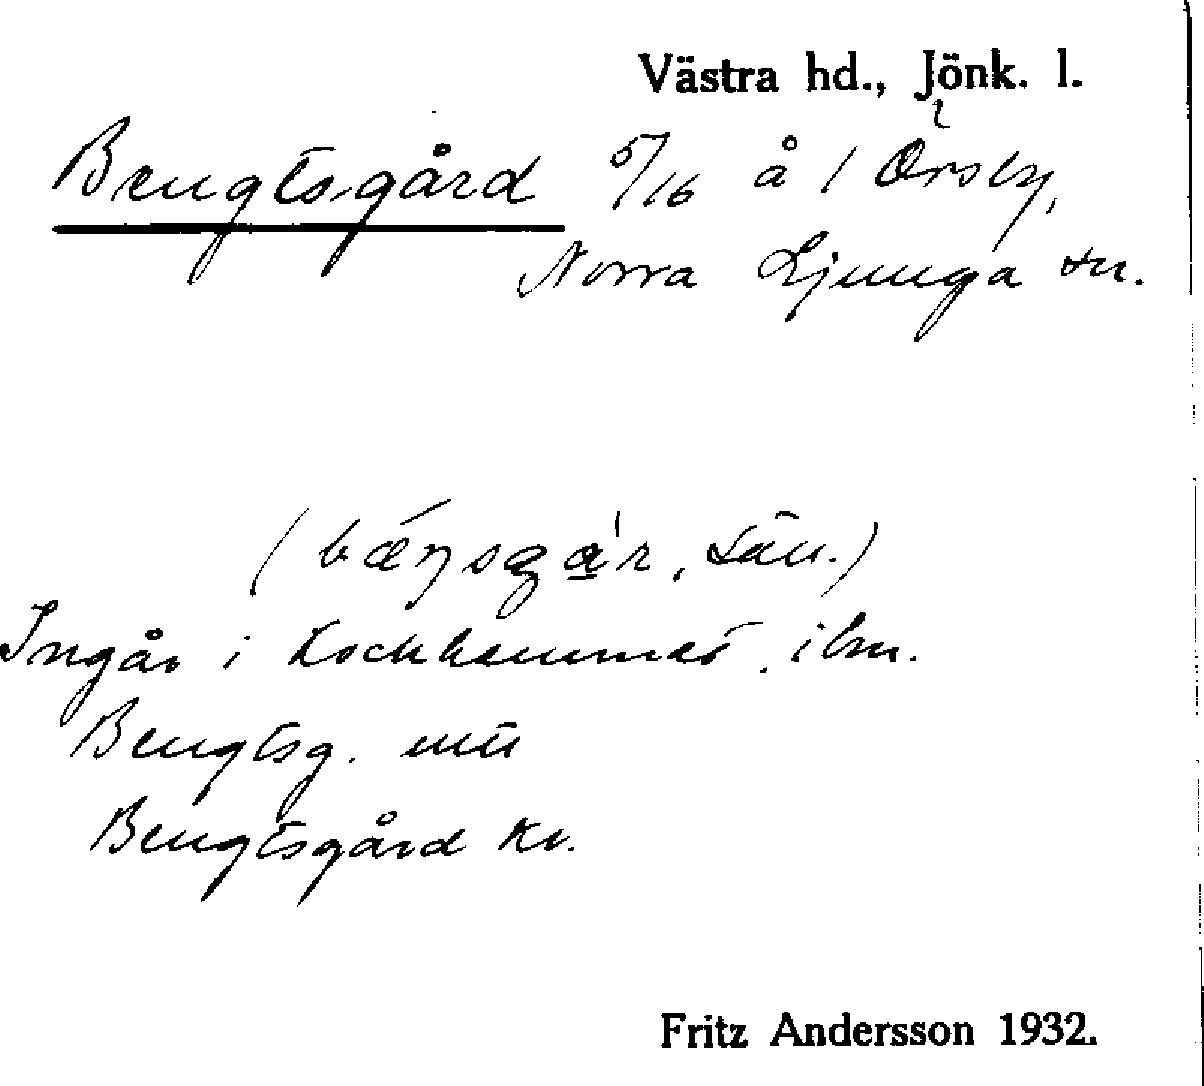 Västra hd., Jönk. l.
Bengtsgård 5/16 å 1 Örsby,
Norra Ljunga sn.
(bǽŋsgạ'r, sän.)
Ingår i Kochhemmet, ibm.
Bengtsg. mtl
Bengtsgård Kv.
Fritz Andersson 1932.